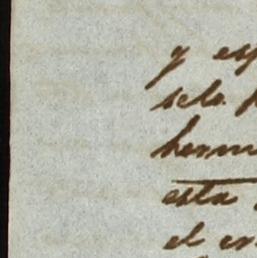 y esp
sele p
herm
esta
el en